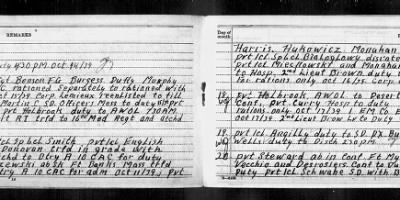 REMARKS
duty 4:30 P.M. Oct 14/39
Sgt Benson F.G. Burgess Duffy Murphy
C. rationed Separately to rationed with
Oct 15/39 Corp Lemieux reenlisted to fill
Martin C SD. Officers Mess to duty
pvt Holbrook duty to AWOL 730 AM.
RT trfd to 10th Med Regt and atchd
pvt 1cl Sobel Smith pvt 1cl English
Donovan trfd in grade with
atchd to Btry A 10 CAC for duty
ab sk Ft Banks Mass trfd
Btry A 10 CAC for adm Oct 11/39 pvt
Day of month
REMARKS
Harris, Hukowicz Monahan
pvt 1cl Sobel Bialoglowy
pvt 1cl Mieczkowski and Monahan
to Hosp. 2nd Lieut Brown duty
for rations only Oct 16/39 Corp
18 pvt Holbrook AWOL to Desert
Conf, pvt Curry Hosp to duty
rations only Oct 17/39 1 EM Co. E
Oct 17/39 2nd Lieut Brown Lv to Duty
19 pvt 1cl Angilly duty to SD. DX
Wells duty to Disch 230 P.M.
20 pvt Steward ab in Conf Ft
Vecchio and Desrosiers Conf to
Duty pvt 1cl Schwabe SD. with